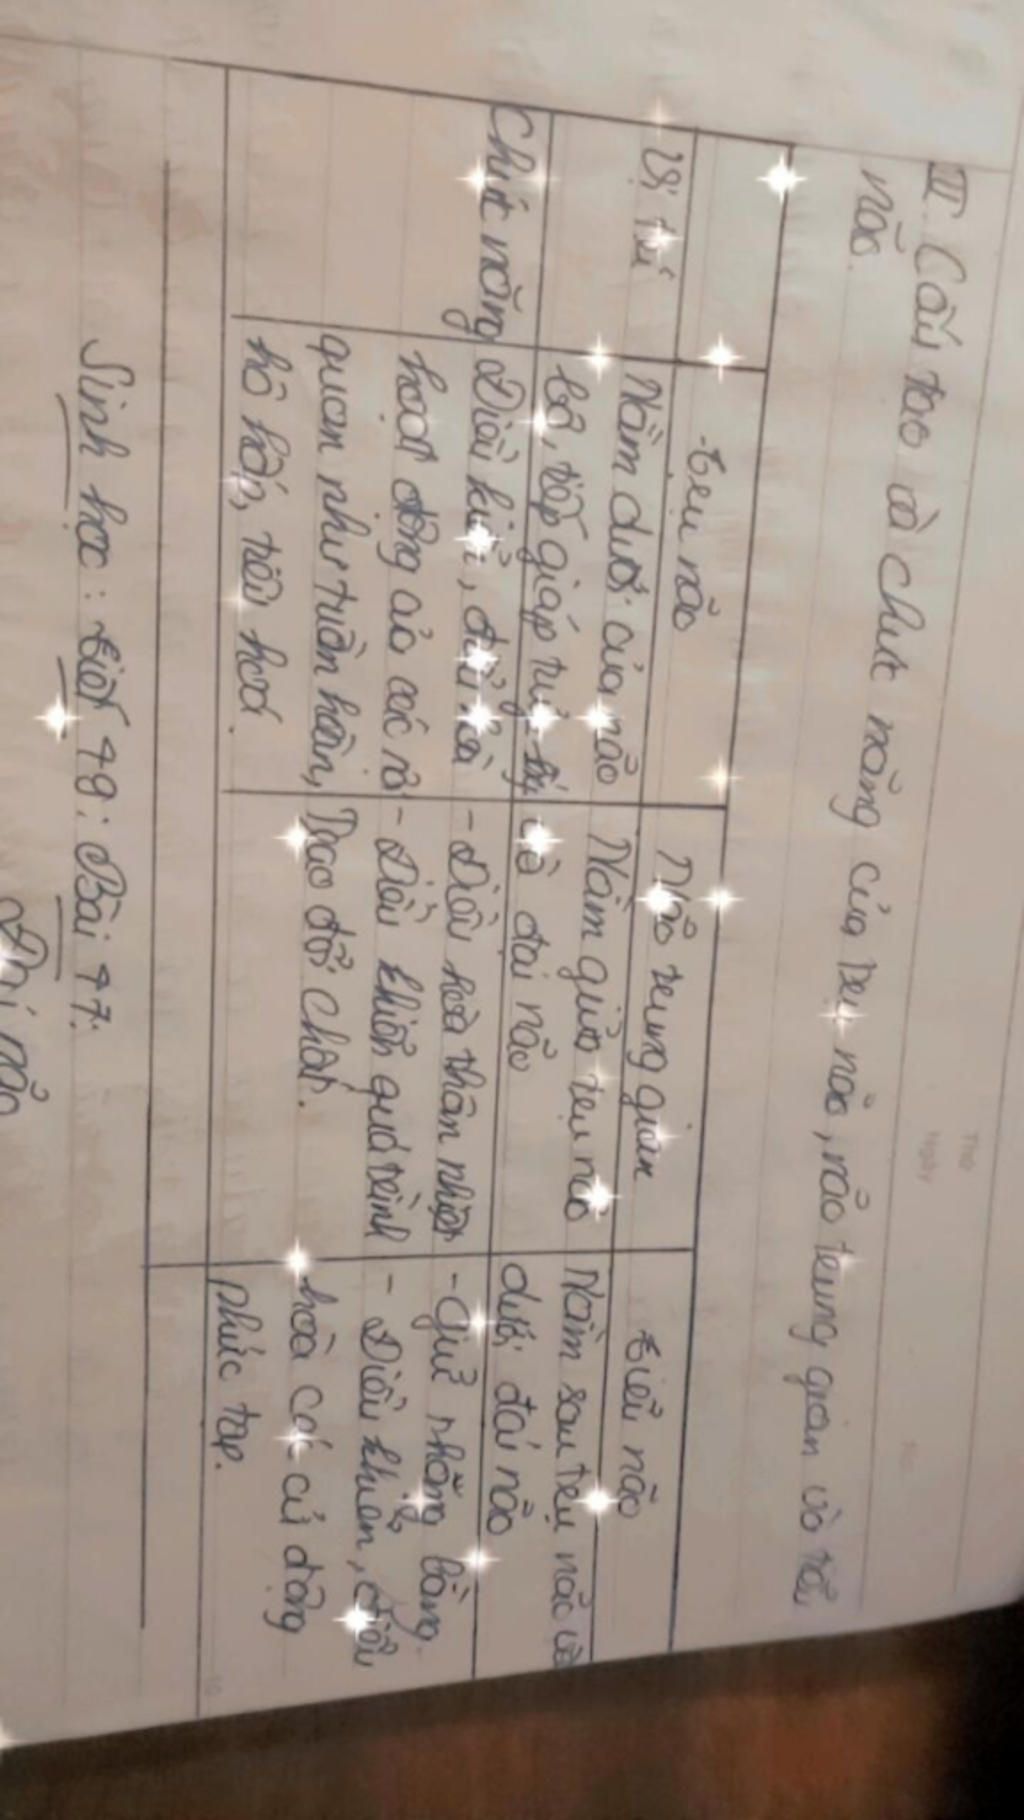 III. Cấu tạo và chức năng của trụ não, não trung gian và tiểu
não.
Trụ não
Não trung gian
Tiểu não
Vị trí
Nằm dưới của não
bộ, tiếp giáp tuỷ
Nằm giữa trụ não
và đại não
Nằm sau trụ não và
dưới đại não
Chức năng
Điều khiển, điều hoà
hoạt động của các cơ
quan như tuần hoàn,
hô hấp, tiêu hoá.
- Điều hoà thân nhiệt
- Điều khiển quá trình
Trao đổi chất.
- Giữ thăng bằng.
- Điều khiển, điều
hoà các cử động
phức tạp.
Sinh học: Tiết 48: Bài 47:
Đại não
Thứ
Ngày